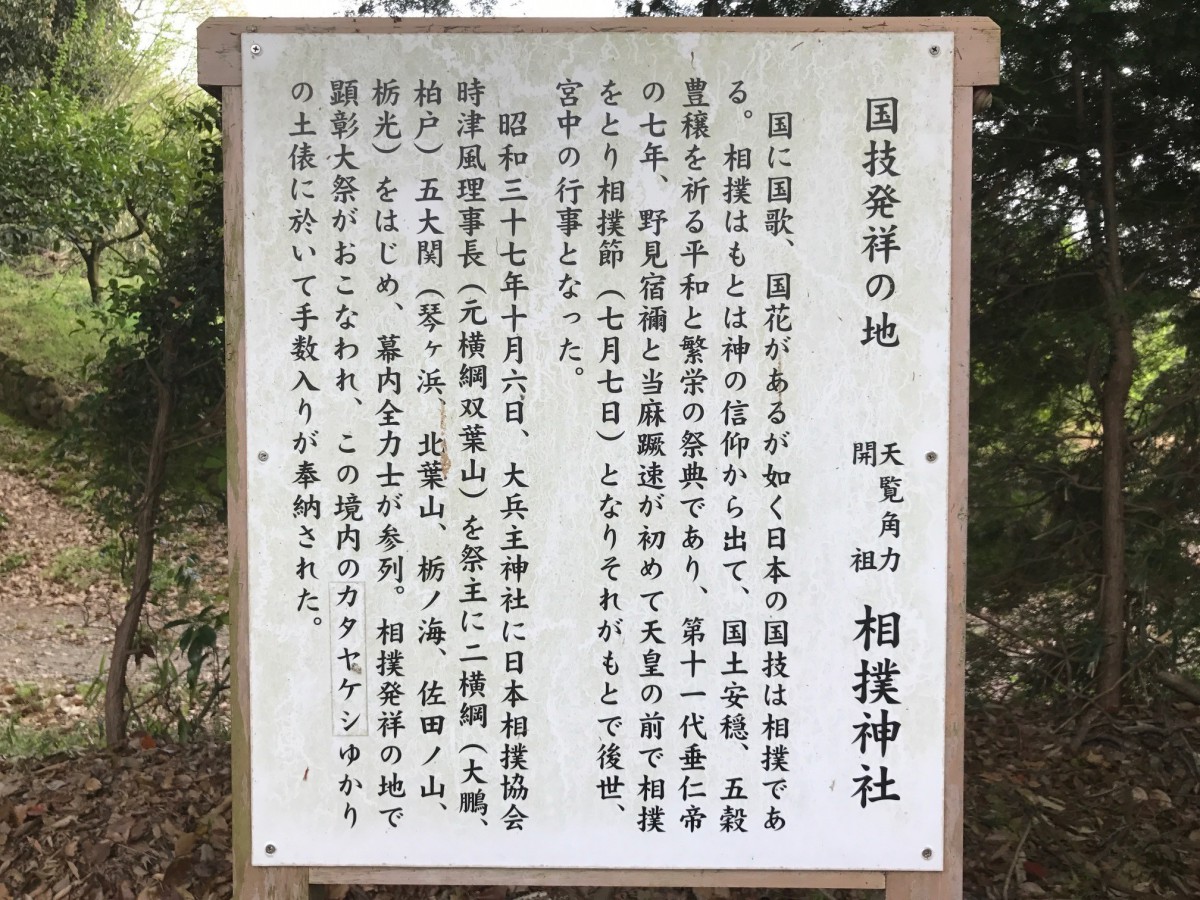 国技発祥の地 天覧角力 開祖 相撲神社
国に国歌、国花があるが如く日本の国技は相撲であ
る。相撲はもとは神の信仰から出て、国土安穏、五穀
豊穣を祈る平和と繁栄の祭典であり、第十一代垂仁帝
の七年、野見宿禰と当麻蹶速が初めて天皇の前で相撲
をとり相撲節（七月七日）となりそれがもとで後世、
宮中の行事となった。
昭和三十七年十月六日、大兵主神社に日本相撲協会
時津風理事長（元横綱双葉山）を祭主に二横綱（大鵬、
柏戸）五大関（琴ヶ浜、北葉山、栃ノ海、佐田ノ山、
栃光）をはじめ、幕内全力士が参列。相撲発祥の地で
顕彰大祭がおこなわれ、この境内のカタヤケシゆかり
の土俵に於いて手数入りが奉納された。